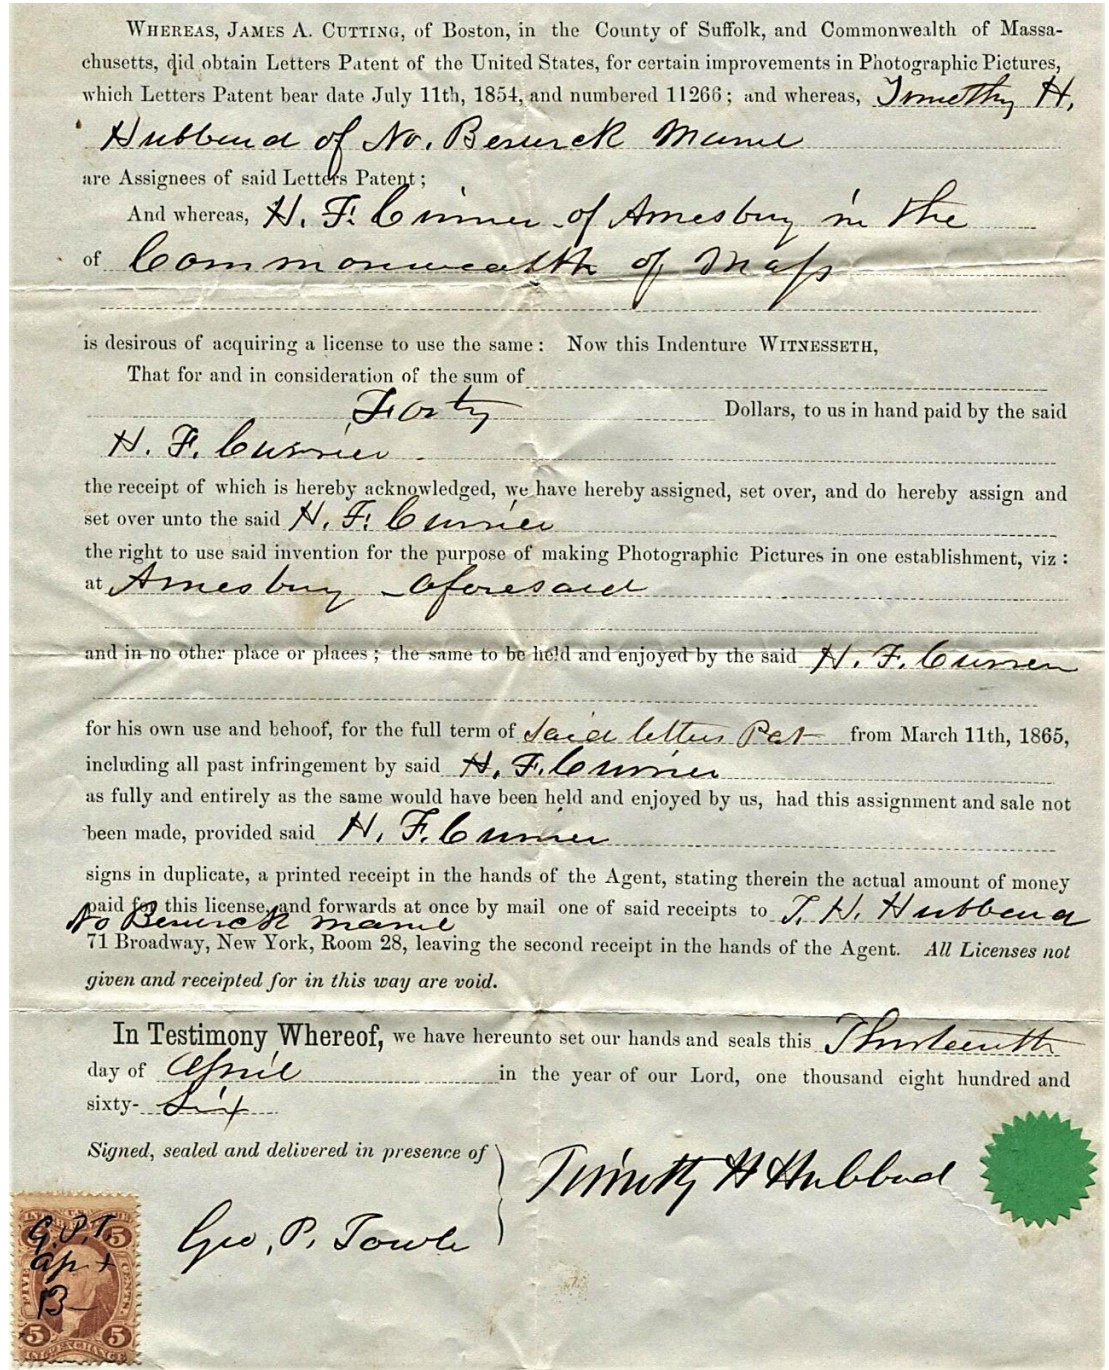 WHEREAS, JAMES A. CUTTING, of Boston, in the County of Suffolk, and Commonwealth of Massa-
chusetts, did obtain Letters Patent of the United States, for certain improvements in Photographic Pictures,
which Letters Patent bear date July 11th, 1854, and numbered 11266; and whereas, Timothy H.
Hubbard of No. Berwick Maine
are Assignees of said Letters Patent;
And whereas, H. F. Currier of Amesbury in the
of Commonwealth of Mass
is desirous of acquiring a license to use the same: Now this Indenture WITNESSETH,
That for and in consideration of the sum of
Forty Dollars, to us in hand paid by the said
H. F. Currier.
the receipt of which is hereby acknowledged, we have hereby assigned, set over, and do hereby assign and
set over unto the said H. F. Currier
the right to use said invention for the purpose of making Photographic Pictures in one establishment, viz:
at Amesbury aforesaid
and in no other place or places; the same to be held and enjoyed by the said H. F. Currier
for his own use and behoof, for the full term of said letters Pat from March 11th, 1865,
including all past infringement by said H. F. Currier
as fully and entirely as the same would have been held and enjoyed by us, had this assignment and sale not
been made, provided said H. F. Currier
signs in duplicate, a printed receipt in the hands of the Agent, stating therein the actual amount of money
paid for this license, and forwards at once by mail one of said receipts to T. H. Hubbard
No Berwick Maine
71 Broadway, New York, Room 28, leaving the second receipt in the hands of the Agent. All Licenses not
given and receipted for in this way are void.
In Testimony Whereof, we have hereunto set our hands and seals this Thirteenth
day of April in the year of our Lord, one thousand eight hundred and
sixty- six
Signed, sealed and delivered in presence of
Timothy H Hubbard
Geo. P. Towle
G.P.T.
Ap
13
5 5
FIVE CENTS
5 5
IND. EXCHANGE